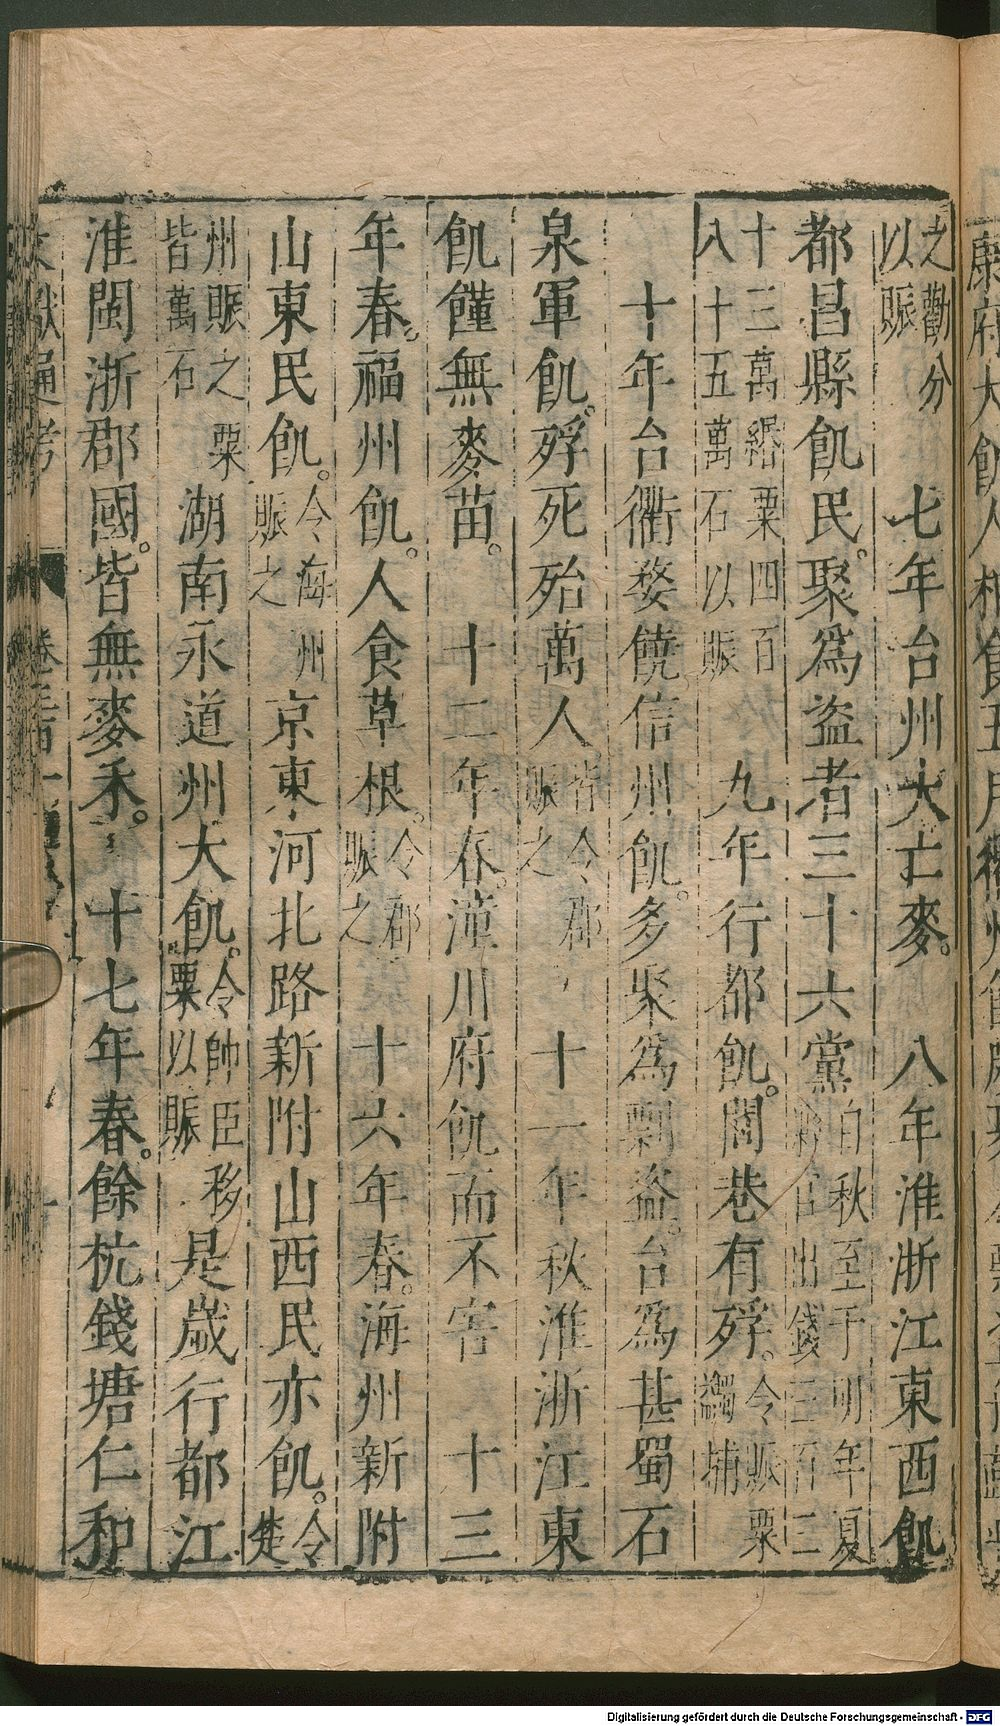 之勸分
以賑
七年台州火亡麥。　八年淮浙江東西飢
都昌縣飢民。聚爲盜者三十六黨
自秋至于明年夏
官出錢三百二
十三萬緡粟四百
八十五萬石以賑
九年行都飢。閭巷有殍。
令賑粟
蠲捕
十年台衢婺饒信州飢。多聚爲剽盜。台爲甚蜀石
泉軍飢。殍死殆萬人
皆令郡
賑之
十一年秋淮浙江東
飢饉無麥苗。　十二年春。潼川府飢而不害　十三
年春。福州飢。人食草根。
令郡
賑之
十六年春。海州新附
山東民飢。
令海州
賑之
京東河北路新附山西民亦飢。
令
楚
州賑之粟
皆萬石
湖南永道州大飢。
令帥臣移
粟以賑
是歲行都江
淮閩浙郡國。皆無麥禾。　十七年春。餘杭錢塘仁和
Digitalisierung gefördert durch die Deutsche Forschungsgemeinschaft - DFG